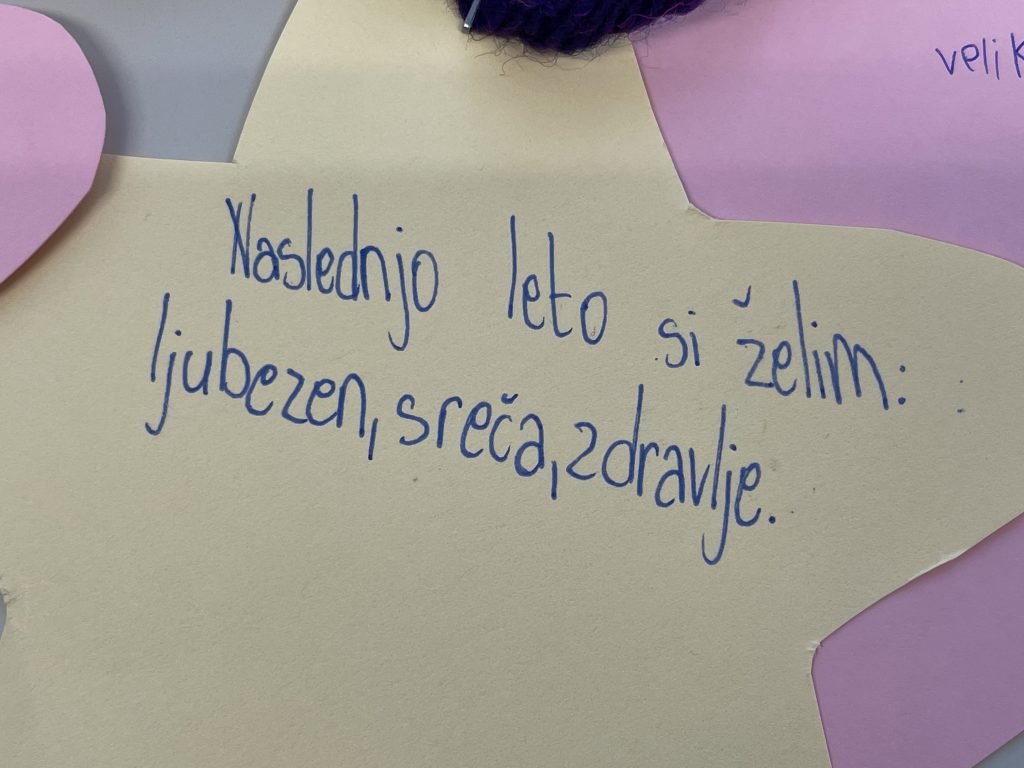 Naslednjo leto si želim:
ljubezen, sreča, zdravlje.